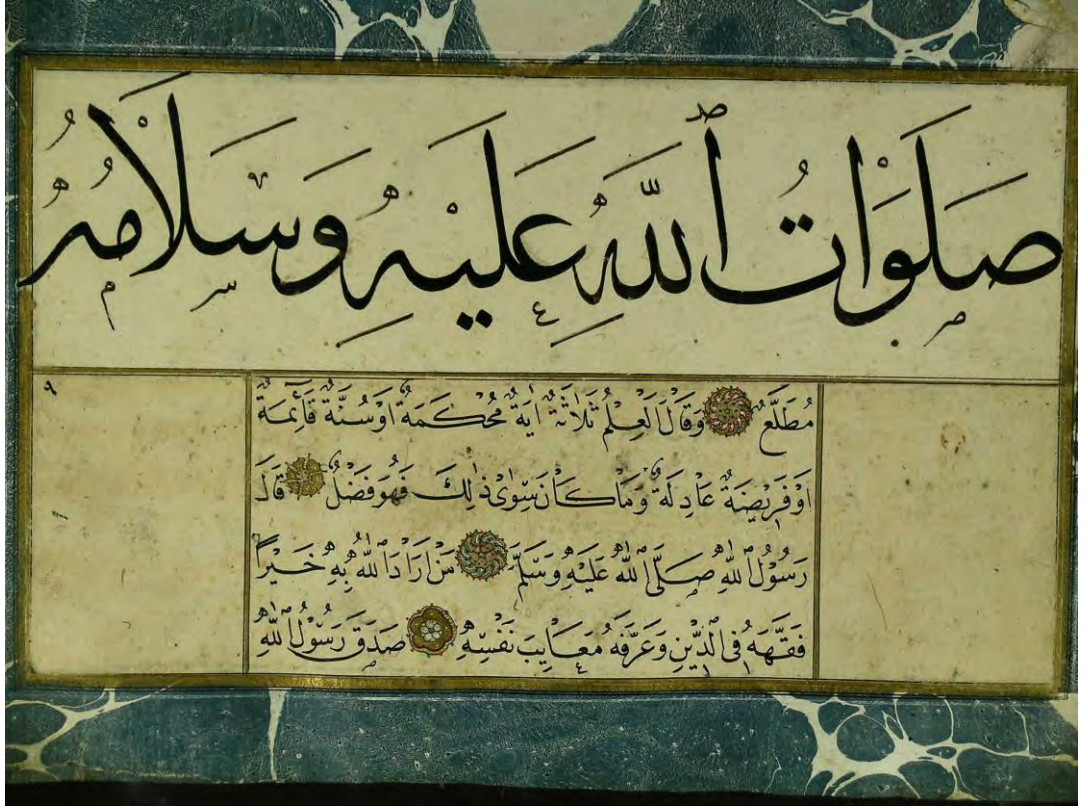 صَلَوَاتُ ٱللّٰهِ عَلَيْهِ وَسَلَامُهُ
مُطَّلَعٌ وَقَالَ الْعِلْمُ ثَلَاثَةٌ اٰيَةٌ مُحْكَمَةٌ اَوْ سُنَّةٌ قَائِمَةٌ
اَوْ فَرِيضَةٌ عَادِلَةٌ وَمَا كَانَ سِوٰى ذٰلِكَ فَهُوَ فَضْلٌ قَالَ
رَسُولُ ٱللّٰهِ صَلَّى ٱللّٰهُ عَلَيْهِ وَسَلَّمَ مَنْ اَرَادَ ٱللّٰهُ بِهِ خَيْرًا
فَقَّهَهُ فِى ٱلدِّينِ وَعَرَّفَهُ مَعَايِبَ نَفْسِهِ صَدَقَ رَسُولُ ٱللّٰهِ